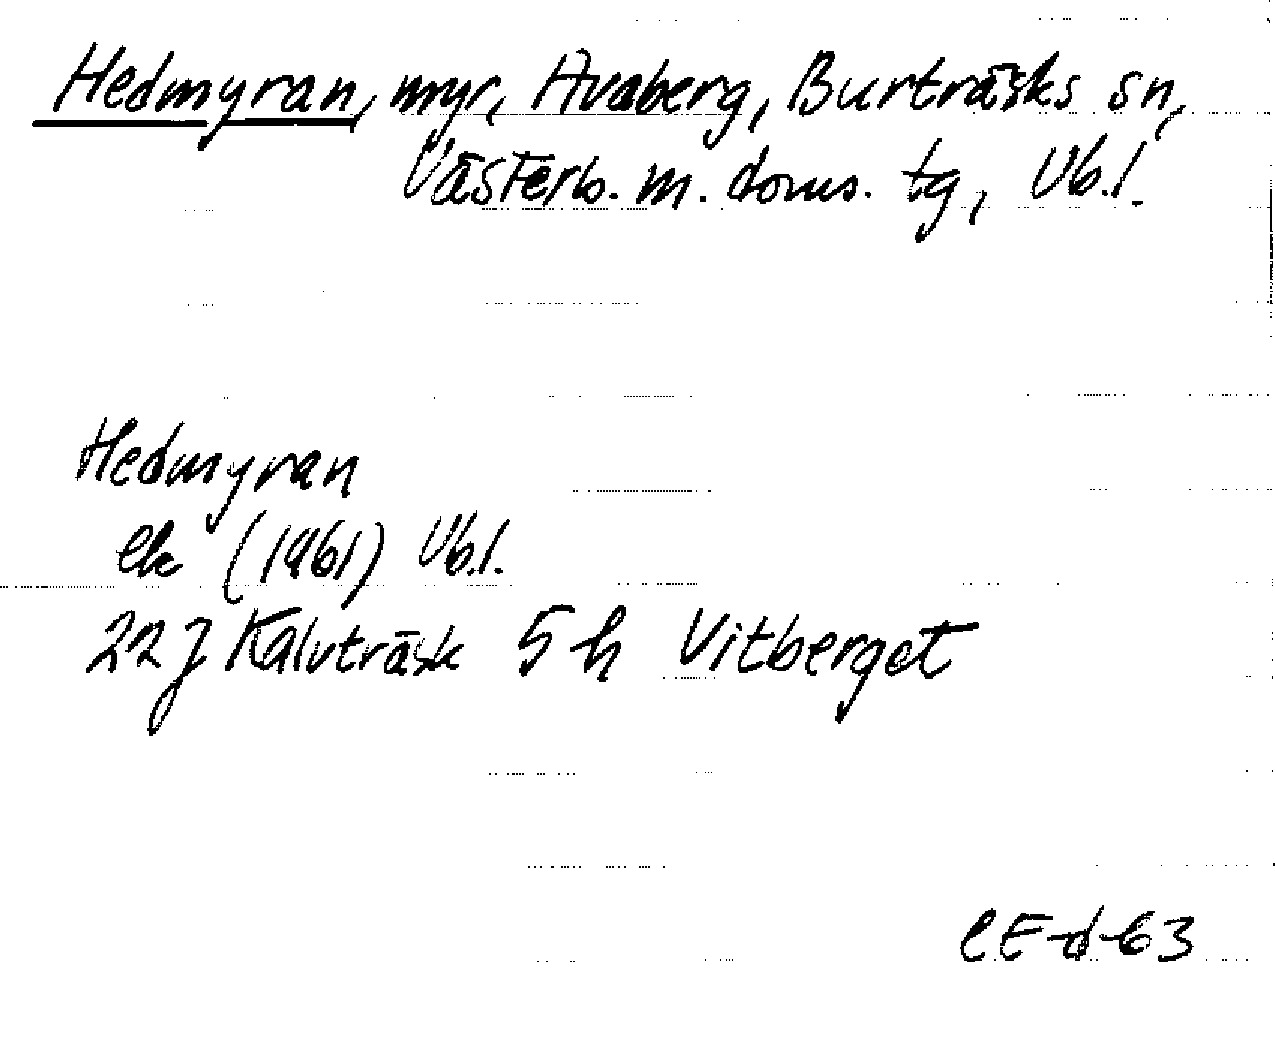 Hedmyran, myr, Avaberg, Burträsks sn,
Västerb. m. doms. tg, Vb.l.
Hedmyran
ek (1961) Vb.l.
22 J Kalvträsk 5 h Vitberget
CE-d-63